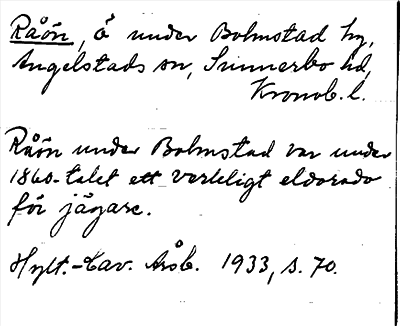 Råön, ö under Bolmstad by,
Angelstads sn, Sunnerbo hd,
Kronob. l.
Råön under Bolmstad var under
1860-talet ett verkligt eldorado
för jägare.
Hylt.-Cav. Årsb. 1933, s. 70.